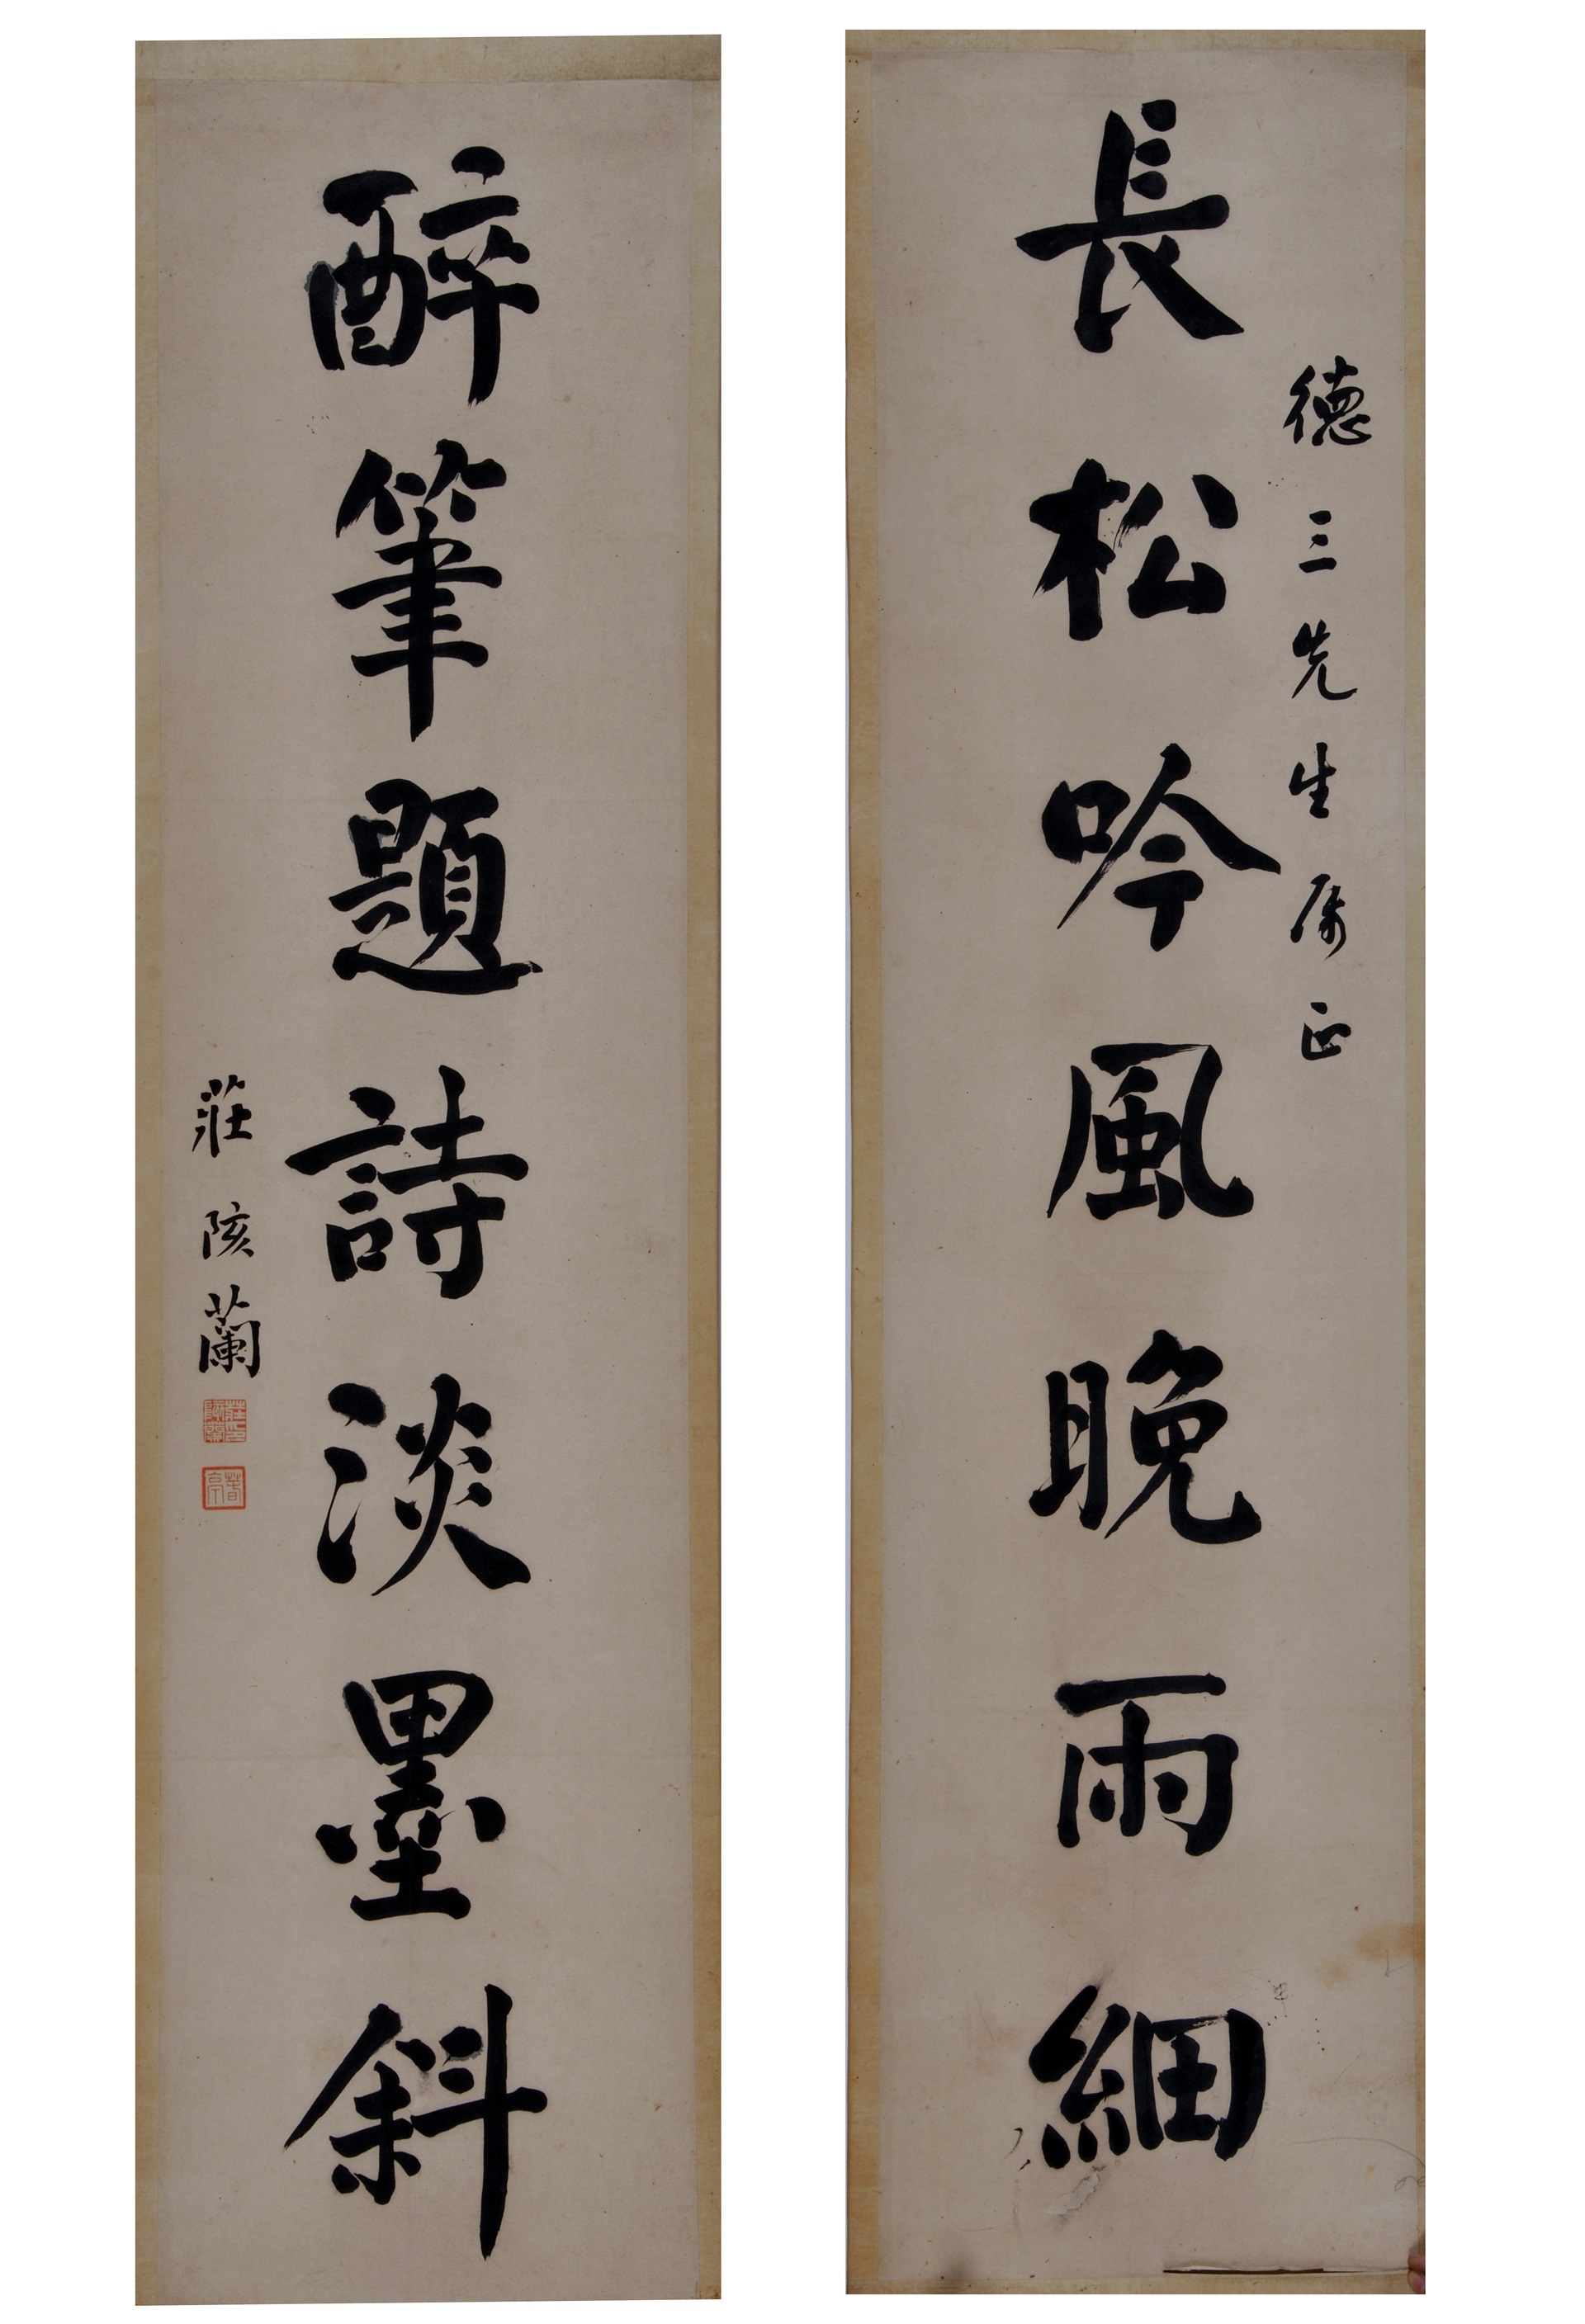 德三先生属正
長松吟風晚雨細
醉筆題詩淡墨斜
莊陔蘭